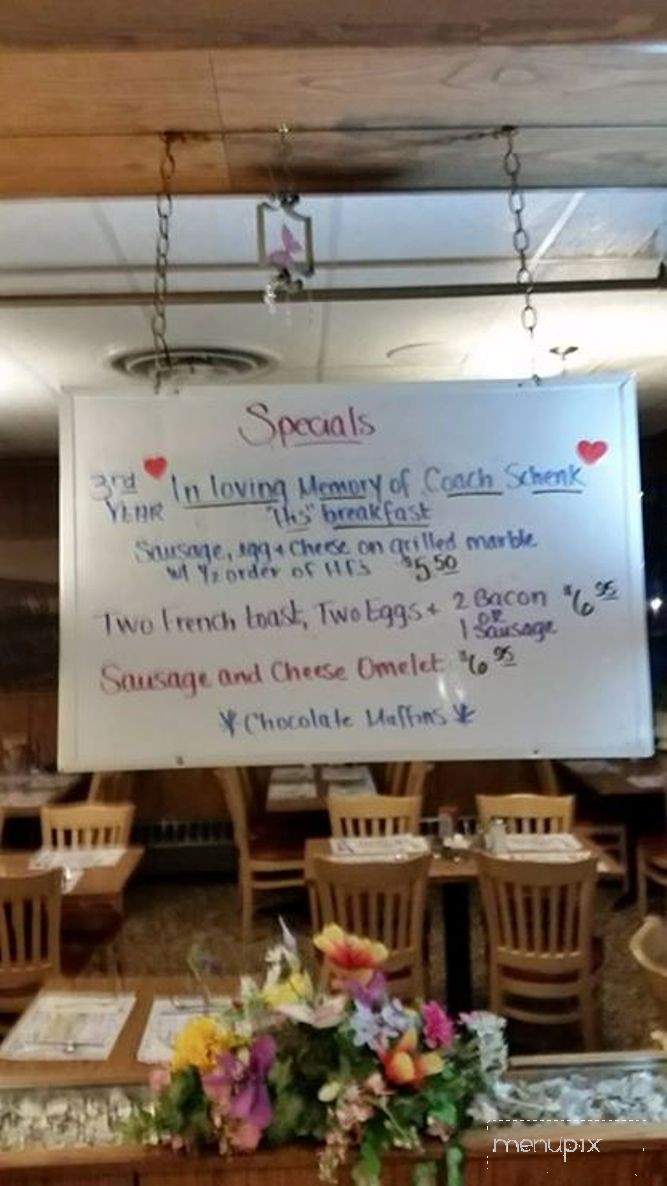 Specials
3rd YEAR In loving Memory of Coach Schenk
"His" breakfast
Sausage, egg + cheese on grilled marble
w/ 1/2 order of H.F.s $5.50
Two French toast, Two Eggs + 2 Bacon OR 1 Sausage $6.95
Sausage and Cheese Omelet $6.95
Chocolate Muffins
menupix